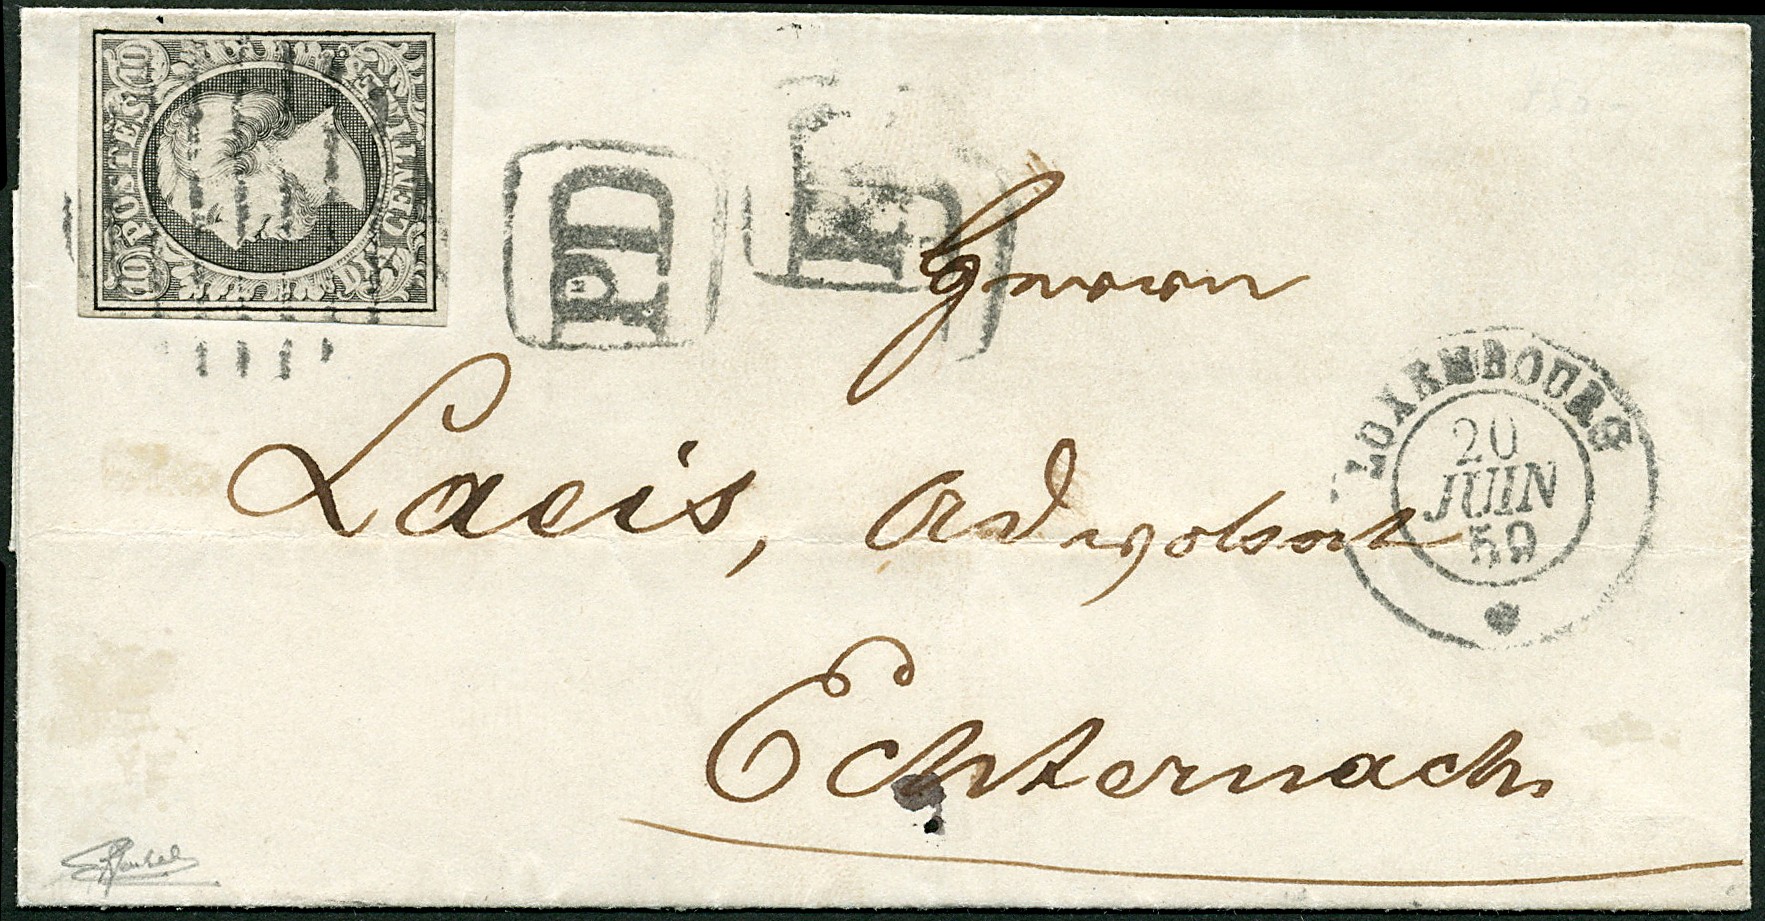 10 POSTES 10
DIX CENTIMES
PD
PD
Herrn
Laeis, Advokat
Echternach.
LUXEMBOURG
20
JUIN
59